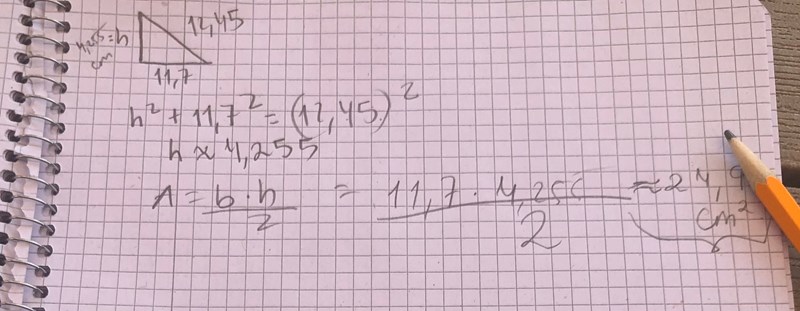 12,45
4,255 = h
cm
11,7
h² + 11,7² = (12,45)²
h ≈ 4,255
A = b · h / 2 = 11,7 · 4,255 / 2 ≈ 24,9
cm²